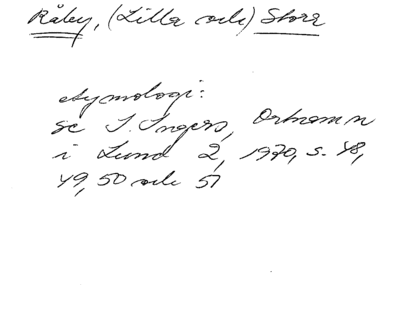 Råby, (Lilla och) Stora
etymologi:
se I. Ingers, Ortnamn
i Lund 2, 1970, s. 48,
49, 50 och 51